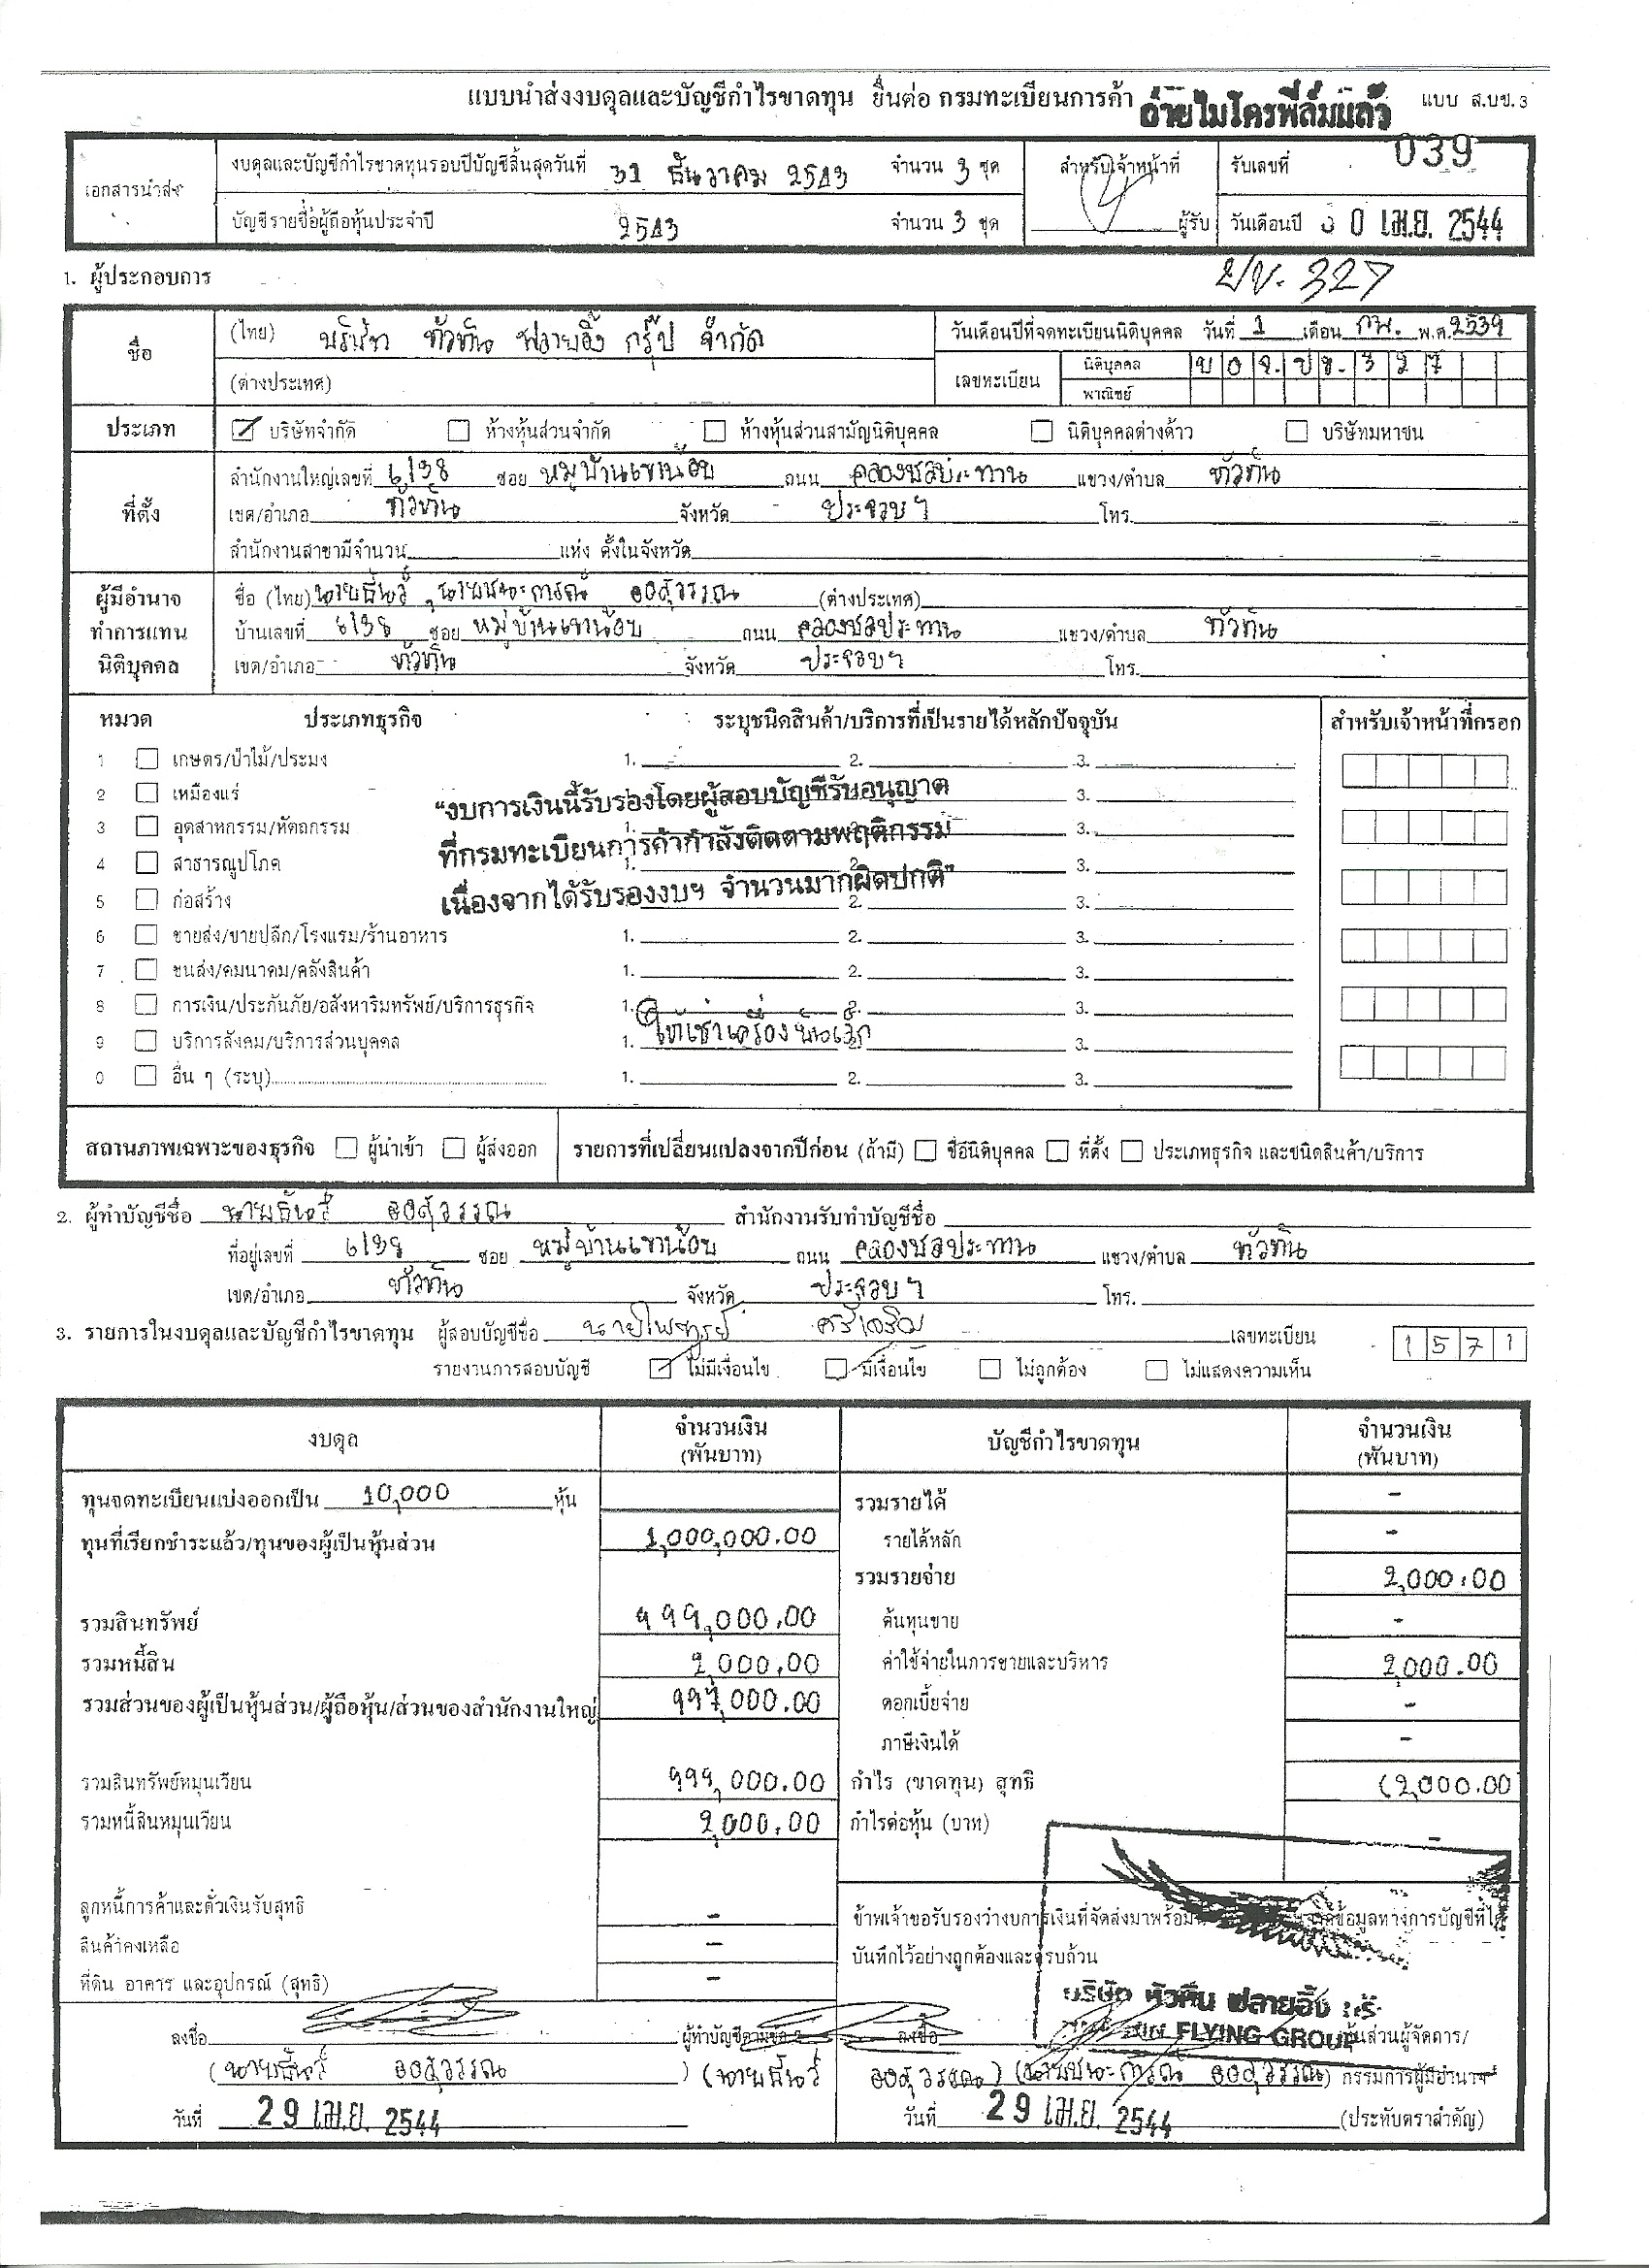 แบบนำส่งงบดุลและบัญชีกำไรขาดทุน ยื่นต่อ กรมทะเบียนการค้า
ถ่ายไมโครฟิล์มแล้ว
แบบ ส.บช. 3
039
เอกสารนำส่ง
งบดุลและบัญชีกำไรขาดทุนรอบปีบัญชีสิ้นสุดวันที่ 31 ธันวาคม 2543 จำนวน 3 ชุด
สำหรับเจ้าหน้าที่
รับเลขที่
บัญชีรายชื่อผู้ถือหุ้นประจำปี 2543 จำนวน 3 ชุด
ผู้รับ
วันเดือนปี 30 เม.ย. 2544
1. ผู้ประกอบการ
ปข. 327
ชื่อ
(ไทย) บริษัท หัวหิน ฟลายอิ้ง กรุ๊ป จำกัด
วันเดือนปีที่จดทะเบียนนิติบุคคล วันที่ 1 เดือน กพ. พ.ศ. 2539
(ต่างประเทศ)
เลขทะเบียน
นิติบุคคล บอจ. ปข. 327
พาณิชย์
ประเภท
บริษัทจำกัด ห้างหุ้นส่วนจำกัด ห้างหุ้นส่วนสามัญนิติบุคคล นิติบุคคลต่างด้าว บริษัทมหาชน
ที่ตั้ง
สำนักงานใหญ่เลขที่ 6/38 ซอย หมู่บ้านเขาน้อย ถนน คลองชลประทาน แขวง/ตำบล หัวหิน
เขต/อำเภอ หัวหิน จังหวัด ประจวบฯ โทร.
สำนักงานสาขามีจำนวน แห่ง ตั้งในจังหวัด
ผู้มีอำนาจ
ทำการแทน
นิติบุคคล
ชื่อ (ไทย) (ต่างประเทศ)
บ้านเลขที่ 6/38 ซอย หมู่บ้านเขาน้อย ถนน คลองชลประทาน แขวง/ตำบล หัวหิน
เขต/อำเภอ หัวหิน จังหวัด ประจวบฯ โทร.
หมวด ประเภทธุรกิจ ระบุชนิดสินค้า/บริการที่เป็นรายได้หลักปัจจุบัน สำหรับเจ้าหน้าที่กรอก
1 เกษตร/ป่าไม้/ประมง 1. 2. 3.
2 เหมืองแร่ 3.
3 อุตสาหกรรม/หัตถกรรม 1. 2. 3.
4 สาธารณูปโภค 1. 2. 3.
5 ก่อสร้าง 2. 3.
"งบการเงินนี้รับรองโดยผู้สอบบัญชีรับอนุญาต
ที่กรมทะเบียนการค้ากำลังติดตามพฤติกรรม
เนื่องจากได้รับรองงบฯ จำนวนมากผิดปกติ"
6 ขายส่ง/ขายปลีก/โรงแรม/ร้านอาหาร 1. 2. 3.
7 ขนส่ง/คมนาคม/คลังสินค้า 1. 2. 3.
8 การเงิน/ประกันภัย/อสังหาริมทรัพย์/บริการธุรกิจ 1. 2. 3.
9 บริการสังคม/บริการส่วนบุคคล 1. ให้เช่าเครื่อง 3.
0 อื่น ๆ (ระบุ) 1. 2. 3.
สถานภาพเฉพาะของธุรกิจ ผู้นำเข้า ผู้ส่งออก รายการที่เปลี่ยนแปลงจากปีก่อน (ถ้ามี) ชื่อนิติบุคคล ที่ตั้ง ประเภทธุรกิจ และชนิดสินค้า/บริการ
2. ผู้ทำบัญชีชื่อ สำนักงานรับทำบัญชีชื่อ
ที่อยู่เลขที่ 6/38 ซอย หมู่บ้านเขาน้อย ถนน คลองชลประทาน แขวง/ตำบล หัวหิน
เขต/อำเภอ หัวหิน จังหวัด ประจวบฯ โทร.
3. รายการในงบดุลและบัญชีกำไรขาดทุน ผู้สอบบัญชีชื่อ นายไพฑูรย์ เลขทะเบียน 1571
รายงานการสอบบัญชี ไม่มีเงื่อนไข มีเงื่อนไข ไม่ถูกต้อง ไม่แสดงความเห็น
งบดุล จำนวนเงิน (พันบาท) บัญชีกำไรขาดทุน จำนวนเงิน (พันบาท)
ทุนจดทะเบียนแบ่งออกเป็น 10,000 หุ้น
รวมรายได้ -
ทุนที่เรียกชำระแล้ว/ทุนของผู้เป็นหุ้นส่วน 1,000,000.00
รายได้หลัก -
รวมรายจ่าย 2,000.00
รวมสินทรัพย์ 999,000.00
ต้นทุนขาย -
รวมหนี้สิน 2,000.00
ค่าใช้จ่ายในการขายและบริหาร 2,000.00
รวมส่วนของผู้เป็นหุ้นส่วน/ผู้ถือหุ้น/ส่วนของสำนักงานใหญ่ 997,000.00
ดอกเบี้ยจ่าย -
ภาษีเงินได้ -
รวมสินทรัพย์หมุนเวียน 999,000.00
กำไร (ขาดทุน) สุทธิ (2,000.00
รวมหนี้สินหมุนเวียน 2,000.00
กำไรต่อหุ้น (บาท) -
ลูกหนี้การค้าและตั๋วเงินรับสุทธิ -
สินค้าคงเหลือ -
ที่ดิน อาคาร และอุปกรณ์ (สุทธิ) -
ข้าพเจ้าขอรับรองว่างบการเงินที่จัดส่งมาพร้อม ข้อมูลทางการบัญชีที่ได้
บันทึกไว้อย่างถูกต้องและครบถ้วน
บริษัท หัวหิน ฟลายอิ้ง
FLYING GROUP
ลงชื่อ ผู้ทำบัญชี
ลงชื่อ หุ้นส่วนผู้จัดการ/
กรรมการผู้มีอำนาจ
วันที่ 29 เม.ย. 2544
วันที่ 29 เม.ย. 2544 (ประทับตราสำคัญ)